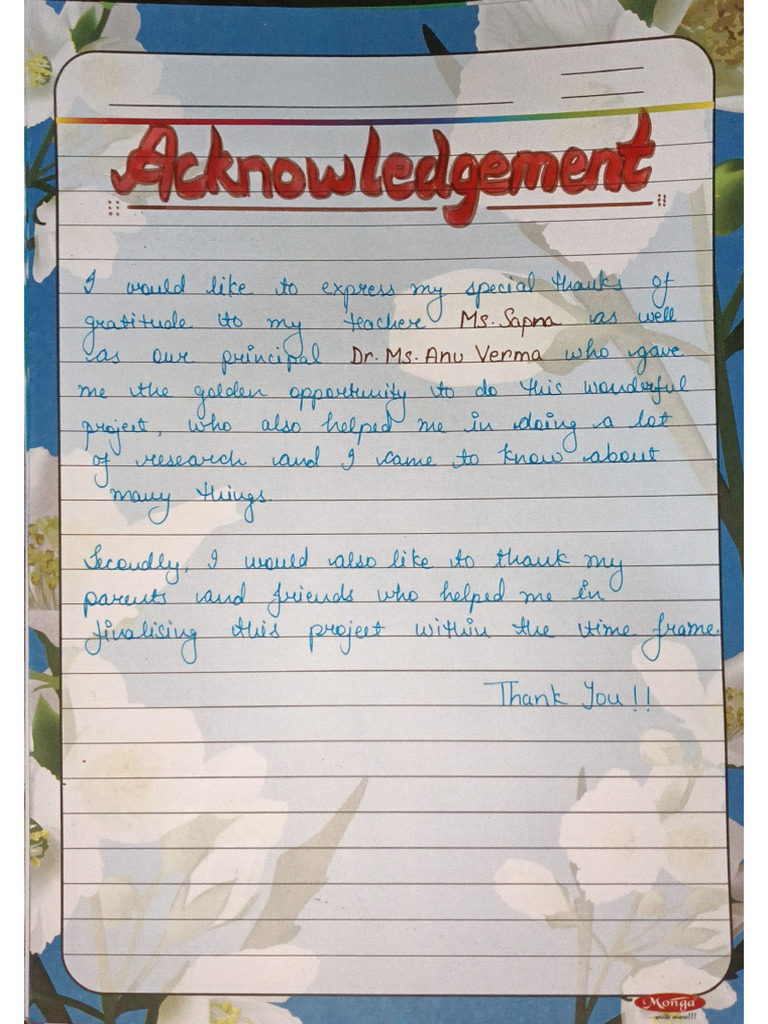 Acknowledgement
I would like to express my special thanks of
gratitude to my teacher Ms. Sapna as well
as our principal Dr. Ms. Anu Verma who gave
me the golden opportunity to do this wonderful
project, who also helped me in doing a lot
of research and I came to know about
many things.
Secondly, I would also like to thank my
parents and friends who helped me in
finalising this project within the time frame.
Thank You!!
Monga